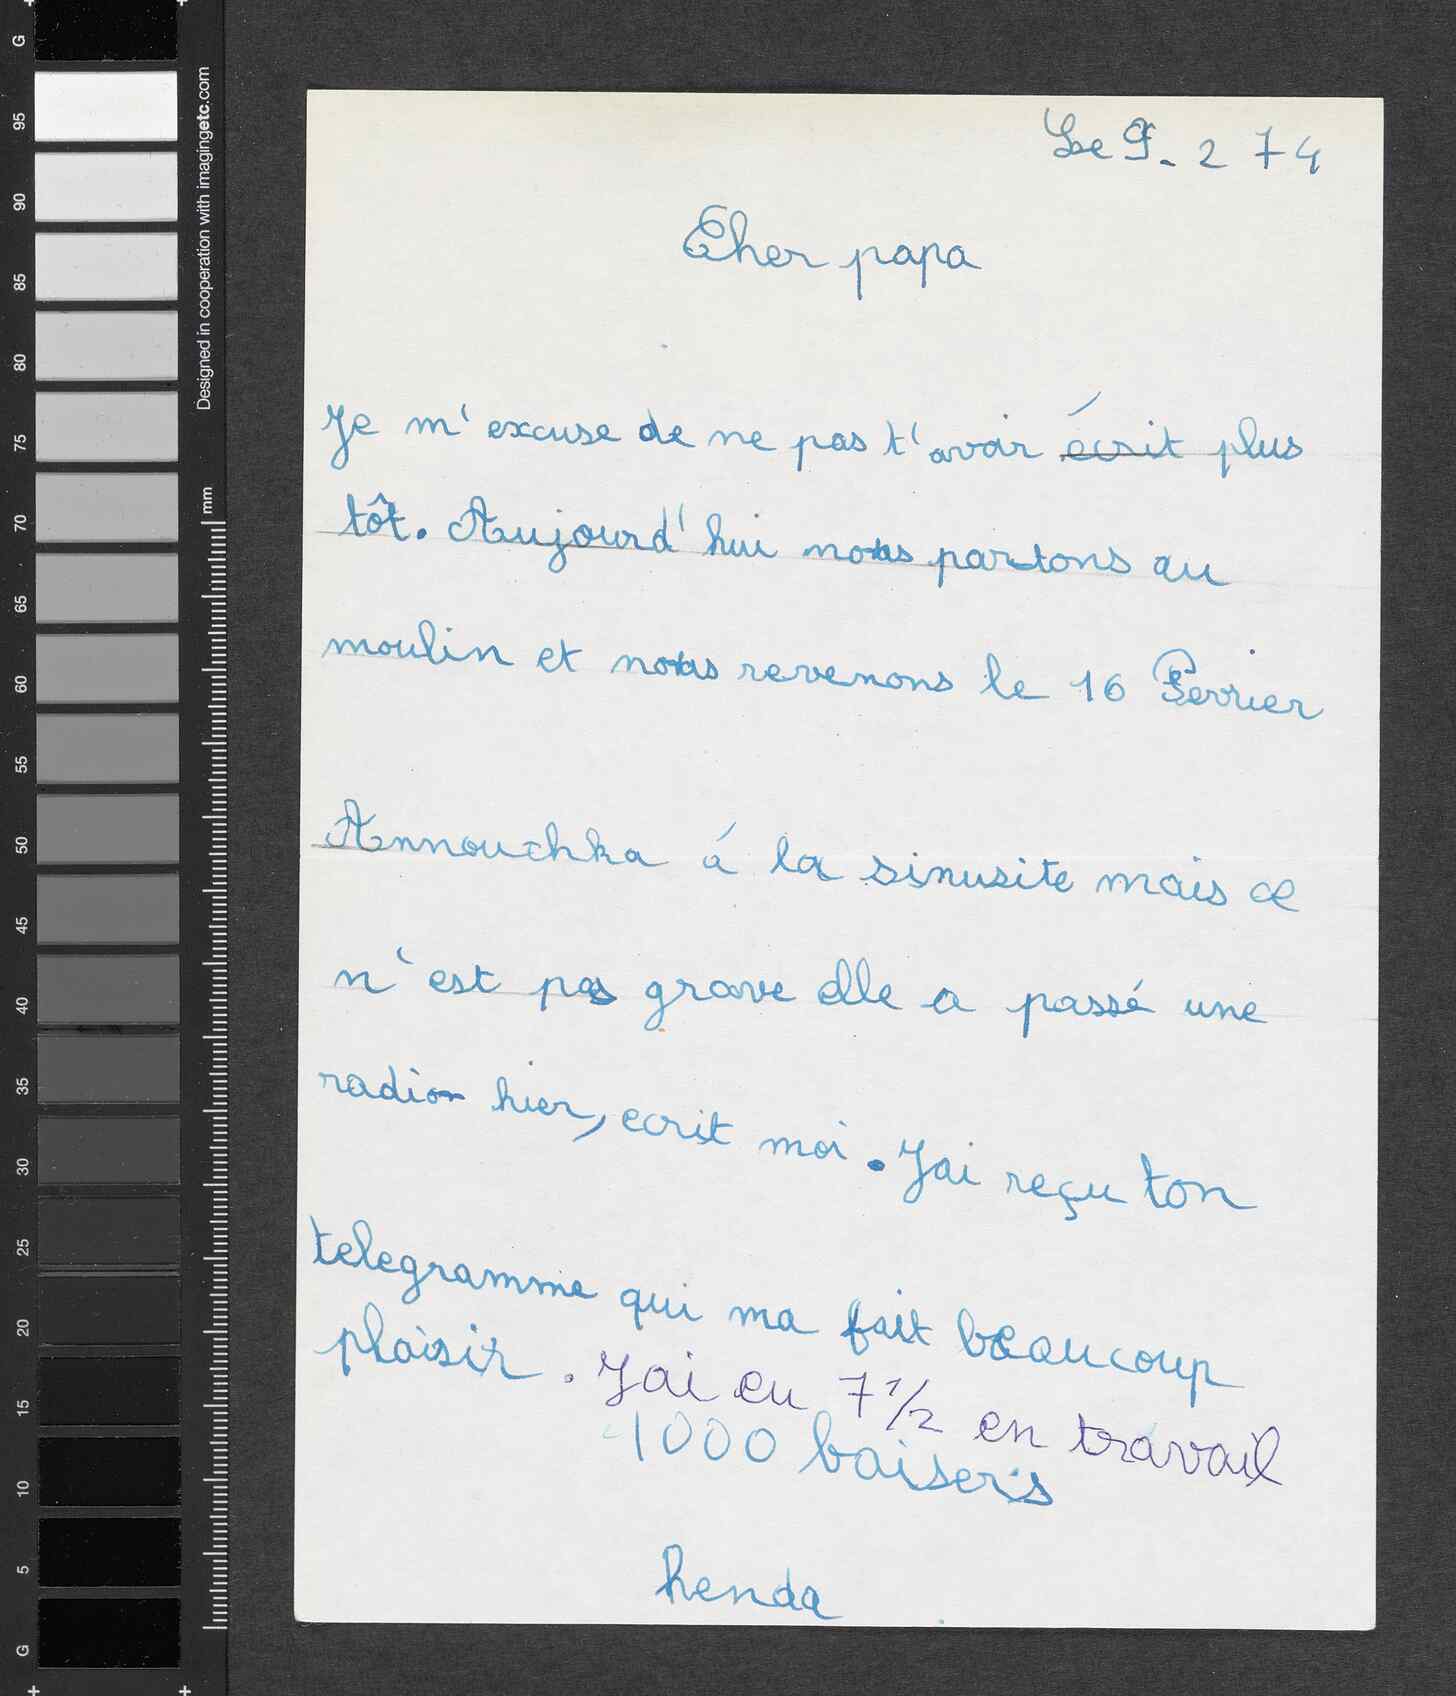 Le 9. 2 74
Cher papa
Je m'excuse de ne pas t'avoir écrit plus
tôt. Aujourd'hui nous partons au
moulin et nous revenons le 16 Fevrier
Annouchka á la sinusite mais ce
n'est pas grave elle a passé une
radio hier, ecrit moi. J'ai reçu ton
telegramme qui ma fait beaucoup
plaisir. J'ai eu 7 1/2 en travail
1000 baisers
henda
G
95
90
85
80
75
70
65
60
55
50
45
40
35
30
25
20
15
10
5
G
Designed in cooperation with imagingetc.com
mm